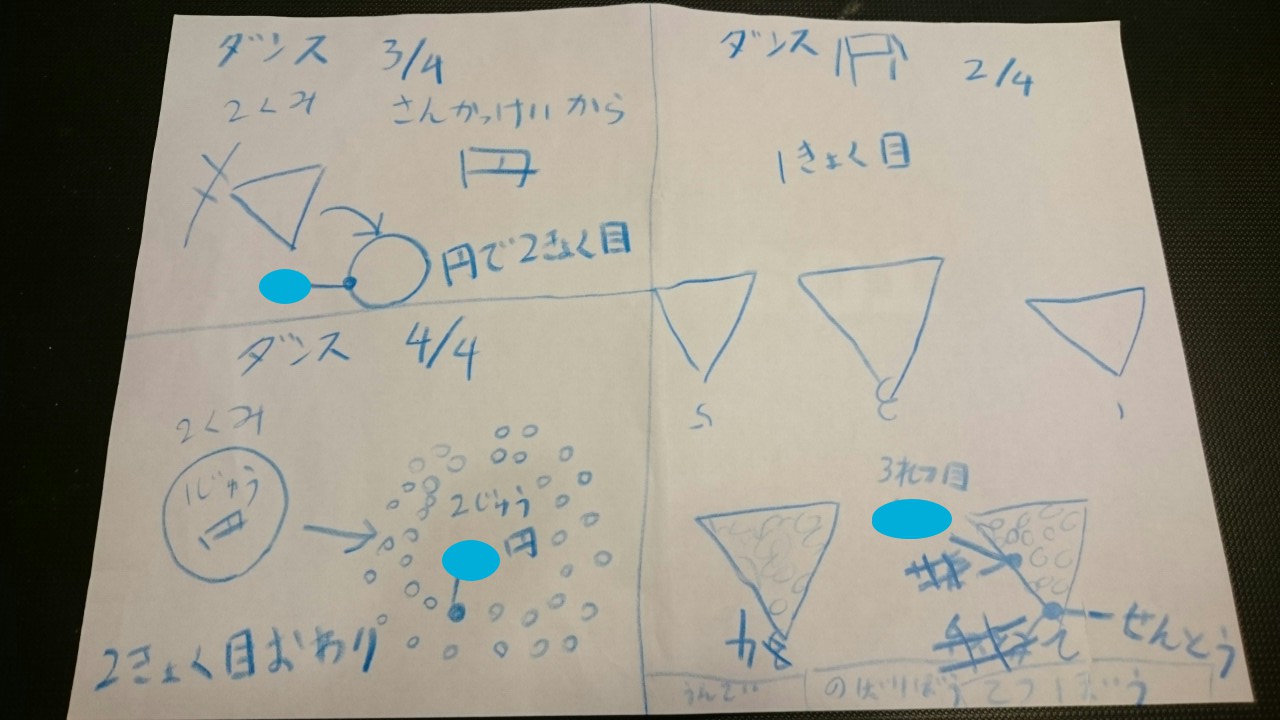 ダンス 3/4
2くみ さんかっけいから
円
円で2きょく目
ダンス 4/4
2くみ
1じゅう
円
2じゅう
円
2きょく目おわり
ダンス 円 2/4
1きょく目
5 と 1
3れつ目
せんとう
うんてい のぼりぼう てつぼう